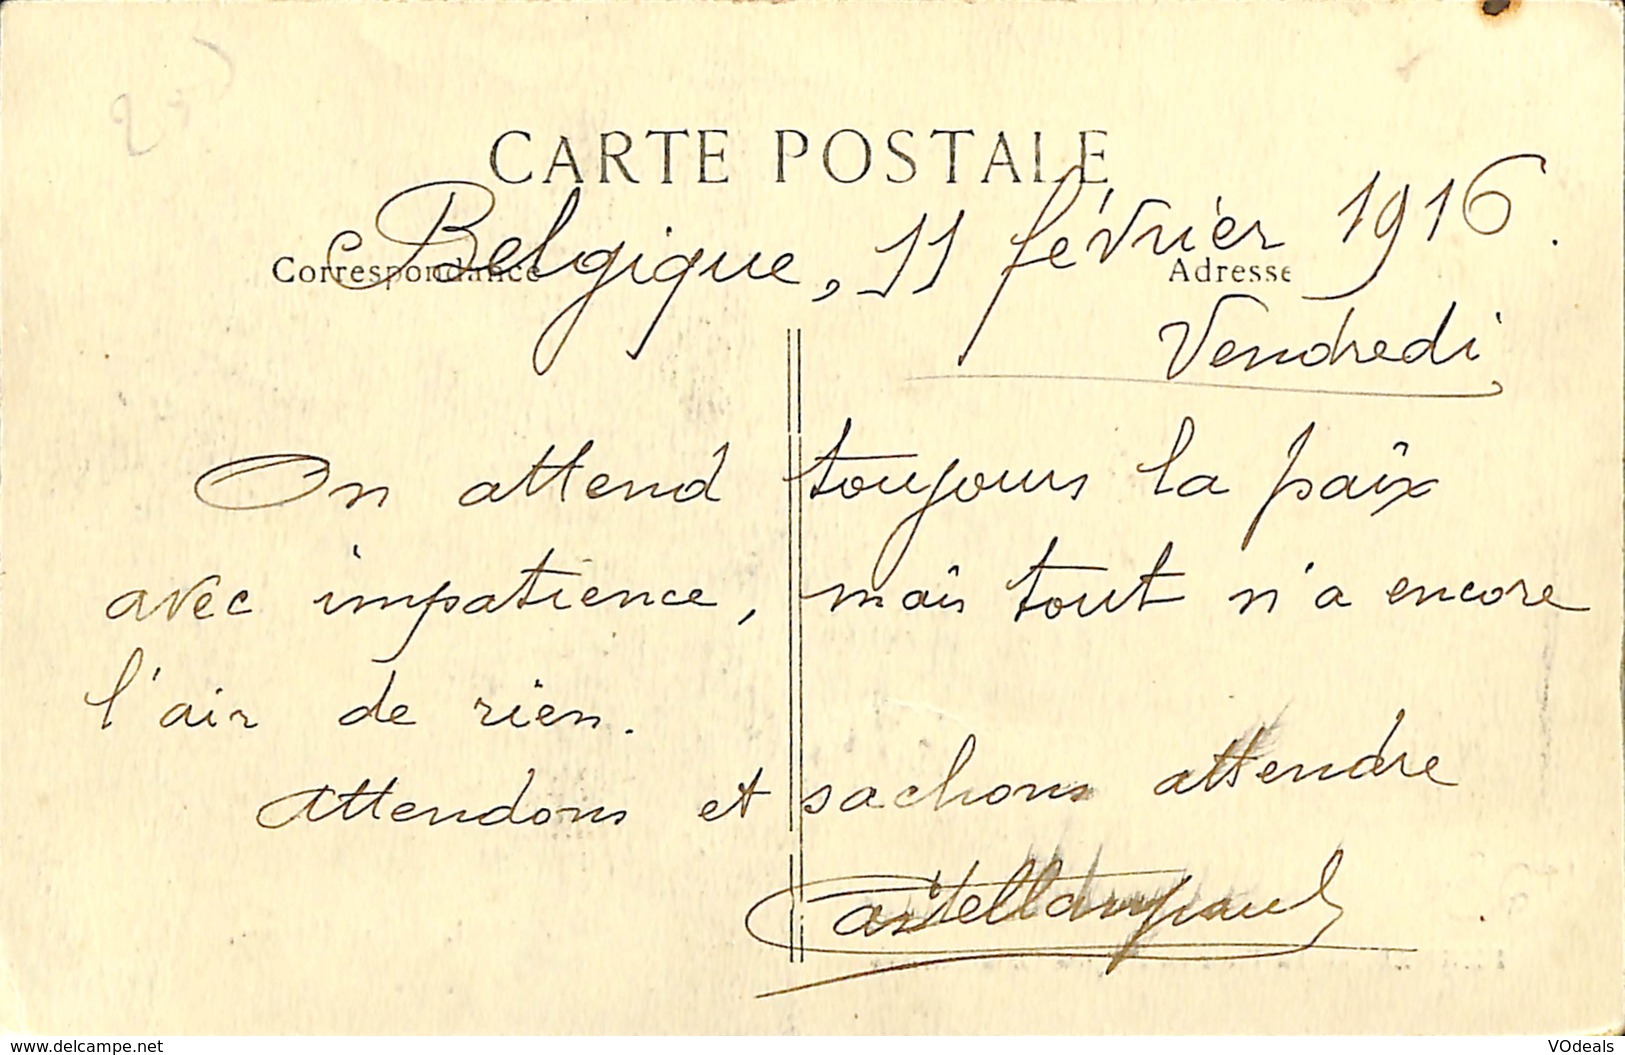 CARTE POSTALE
Belgique, 11 février 1916.
Correspondance Adresse
Vendredi,
On attend toujours la paix
avec impatience, mais tout n'a encore
l'air de rien.
Attendons et sachons attendre
www.delcampe.net VOdeals